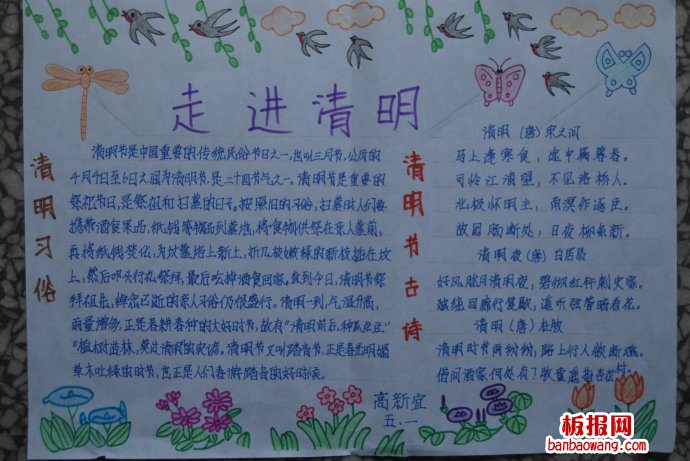 走进清明
清明习俗
清明节是中国重要的传统民俗节日之一，也叫三月节，公历的
4月4日至6日之间为清明节，是二十四节气之一。清明节是重要的
祭祀节日，是祭祖和扫墓的日子。按照旧的习俗，扫墓时人们要
携带酒食果品，纸钱等物品到墓地，将食物供祭在亲人墓前，
再将纸钱焚化，为坟墓培上新土，折几枝嫩绿的新枝插在坟
上，然后叩头行礼祭拜，最后吃掉酒食回家。直到今日，清明节祭
拜祖先，悼念已逝的亲人习俗仍很盛行。清明一到，气温升高，
雨量增多，正是春耕春种的大好时节，故有"清明前后，种瓜点豆。"
"植树造林，莫过清明的农谚。清明节又叫踏青节，正是春光明媚
草木吐绿的时节，也正是人们春游踏青的好时候。
清明节古诗
清明（唐）宋之问
马上逢寒食，途中属暮春。
可怜江浦望，不见洛桥人。
北极怀明主，南溟作逐臣。
故园断处，日夜柳条新。
清明夜（唐）白居易
好风胧月清明夜，碧砌红轩刺史家。
独绕回廊行复歇，遥听弦管暗看花。
清明（唐）杜牧
清明时节雨纷纷，路上行人欲断魂。
借问酒家何处有？牧童遥指杏花村。
高新宜
五、一
板报网
banbaowang.com